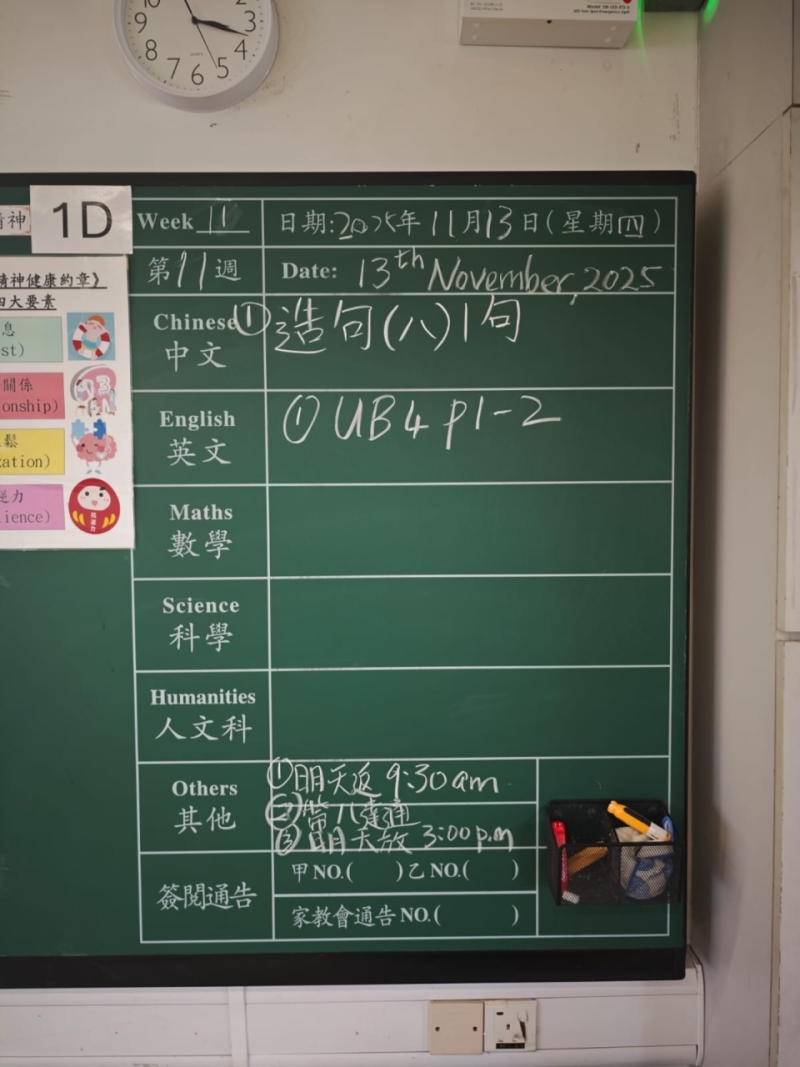 10 2 9 3 8 4 7 6 5
精神
1D
精神健康約章》
四大要素
息
st)
關係
onship)
鬆
xation)
逆力
lience)
Week 11
日期:2025年11月13日(星期四)
第11週
Date: 13th November, 2025
Chinese
中文
①造句(八)1句
English
英文
① UB4 p1-2
Maths
數學
Science
科學
Humanities
人文科
Others
其他
①明天返 9:30am
②帶八達通
③明天放 3:00p.m
簽閱通告
甲NO.( )乙NO.( )
家教會通告NO.( )